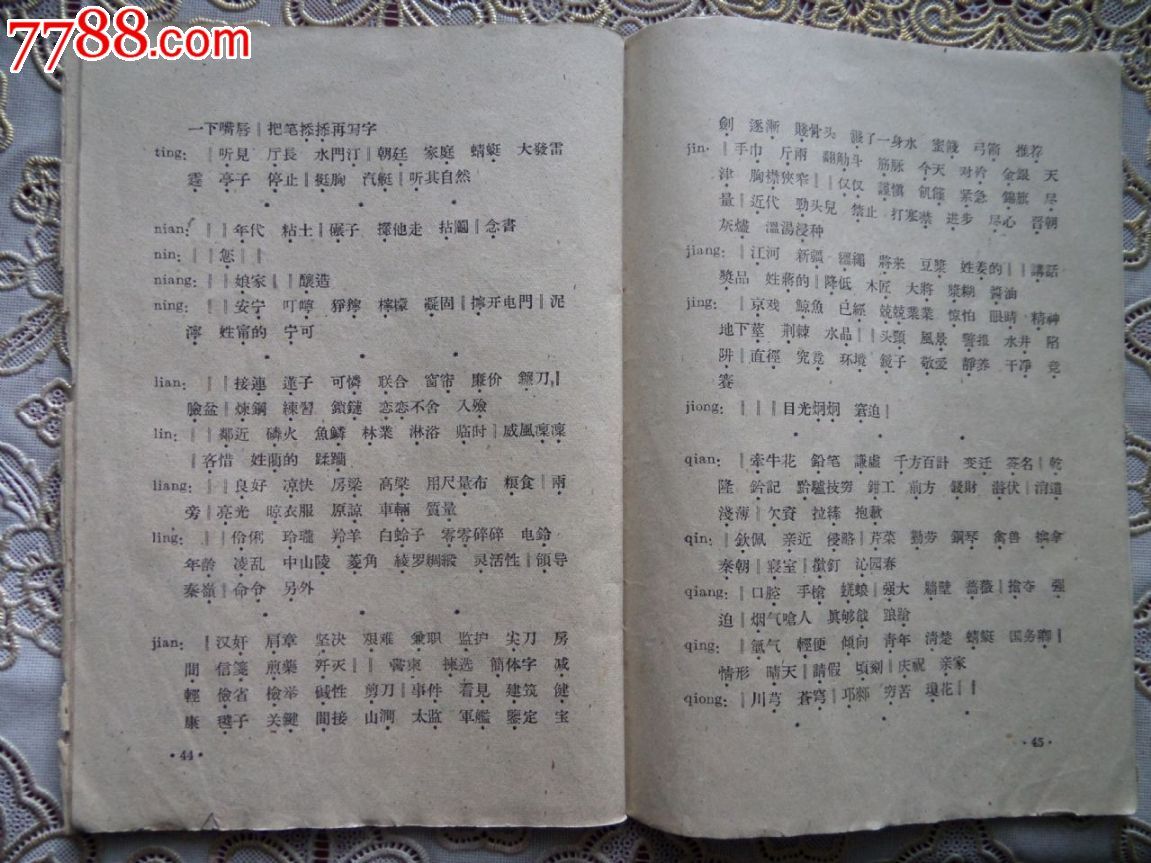 7788.com
一下嘴唇‖把笔㧱㧱再写字
ting:‖听見 厅長 水門汀‖朝廷 家庭 蜻蜓 大發雷
霆 亭子 停止‖挺胸 汽艇‖听其自然
nian:‖‖年代 粘土‖碾子 攆他走 拈鬮‖念書
nin:‖‖您‖‖
niang:‖‖娘家‖‖釀造
ning:‖‖安宁 叮嚀 猙獰 檸檬 凝固‖擰开电門‖泥
濘 姓甯的 宁可
lian:‖‖接連 蓮子 可憐 联合 窗帘 廉价 鐮刀‖
臉盆‖煉鋼 練習 鎖鏈 恋恋不舍 入殮
lin:‖‖鄰近 磷火 魚鱗 林業 淋浴 临时‖威風凜凜
‖吝惜 姓藺的 蹂躪
liang:‖‖良好 凉快 房梁 高粱 用尺量布 粮食‖兩
旁‖亮光 晾衣服 原諒 車輛 質量
ling:‖‖伶俐 玲瓏 羚羊 白蛉子 零零碎碎 电鈴
年龄 凌乱 中山陵 菱角 綾罗綢緞 灵活性‖領导
秦嶺‖命令 另外
jian:‖汉奸 肩章 坚决 艰难 兼职 监护 尖刀 房
間 信箋 煎藥 歼灭‖‖ 揀选 簡体字 减
輕 儉省 檢举 碱性 剪刀‖事件 看見 建筑 健
康 毽子 关鍵 間接 山澗 太监 軍艦 鑒定 宝
·44·
劍 逐漸 賤骨头 濺了一身水 蜜餞 弓箭 推荐
jin:‖手巾 斤兩 翻觔斗 筋脉 今天 对衿 金銀 天
津 胸襟狹窄‖‖仅仅 謹慎 飢饉 紧急 錦旗 尽
量‖近代 勁头兒 禁止 打寒噤 进步 尽心 晋朝
灰燼 溫湯浸种
jiang:‖江河 新疆 繮繩 將来 豆漿 姓姜的‖‖講話
獎品 姓蔣的‖降低 木匠 大將 漿糊 醬油
jing:‖京戏 鯨魚 已經 兢兢業業 惊怕 眼睛 精神
地下莖 荆棘 水晶‖‖头頸 風景 警报 水井 陷
阱‖直徑 究竟 环境 鏡子 敬爱 靜养 干净 竞
賽
jiong:‖‖‖目光炯炯 窘迫‖
qian:‖牽牛花 鉛笔 謙虛 千方百計 变迁 签名‖乾
隆 鈐記 黔驢技穷 鉗工 前方 錢財 潛伏‖消遣
淺薄‖欠資 拉縴 抱歉
qin:‖欽佩 亲近 侵略‖芹菜 勤劳 鋼琴 禽兽 擒拿
秦朝‖寢室‖撳釘 沁园春
qiang:‖口腔 手槍 蜣螂‖强大 牆壁 薔薇‖搶夺 强
迫‖烟气嗆人 眞够戧 踉蹌
qing:‖氫气 輕便 傾向 青年 清楚 蜻蜓 国务卿‖
情形 晴天‖請假 頃刻‖庆祝 亲家
qiong:‖川芎 蒼穹‖邛郲 穷苦 瓊花‖‖
·45·